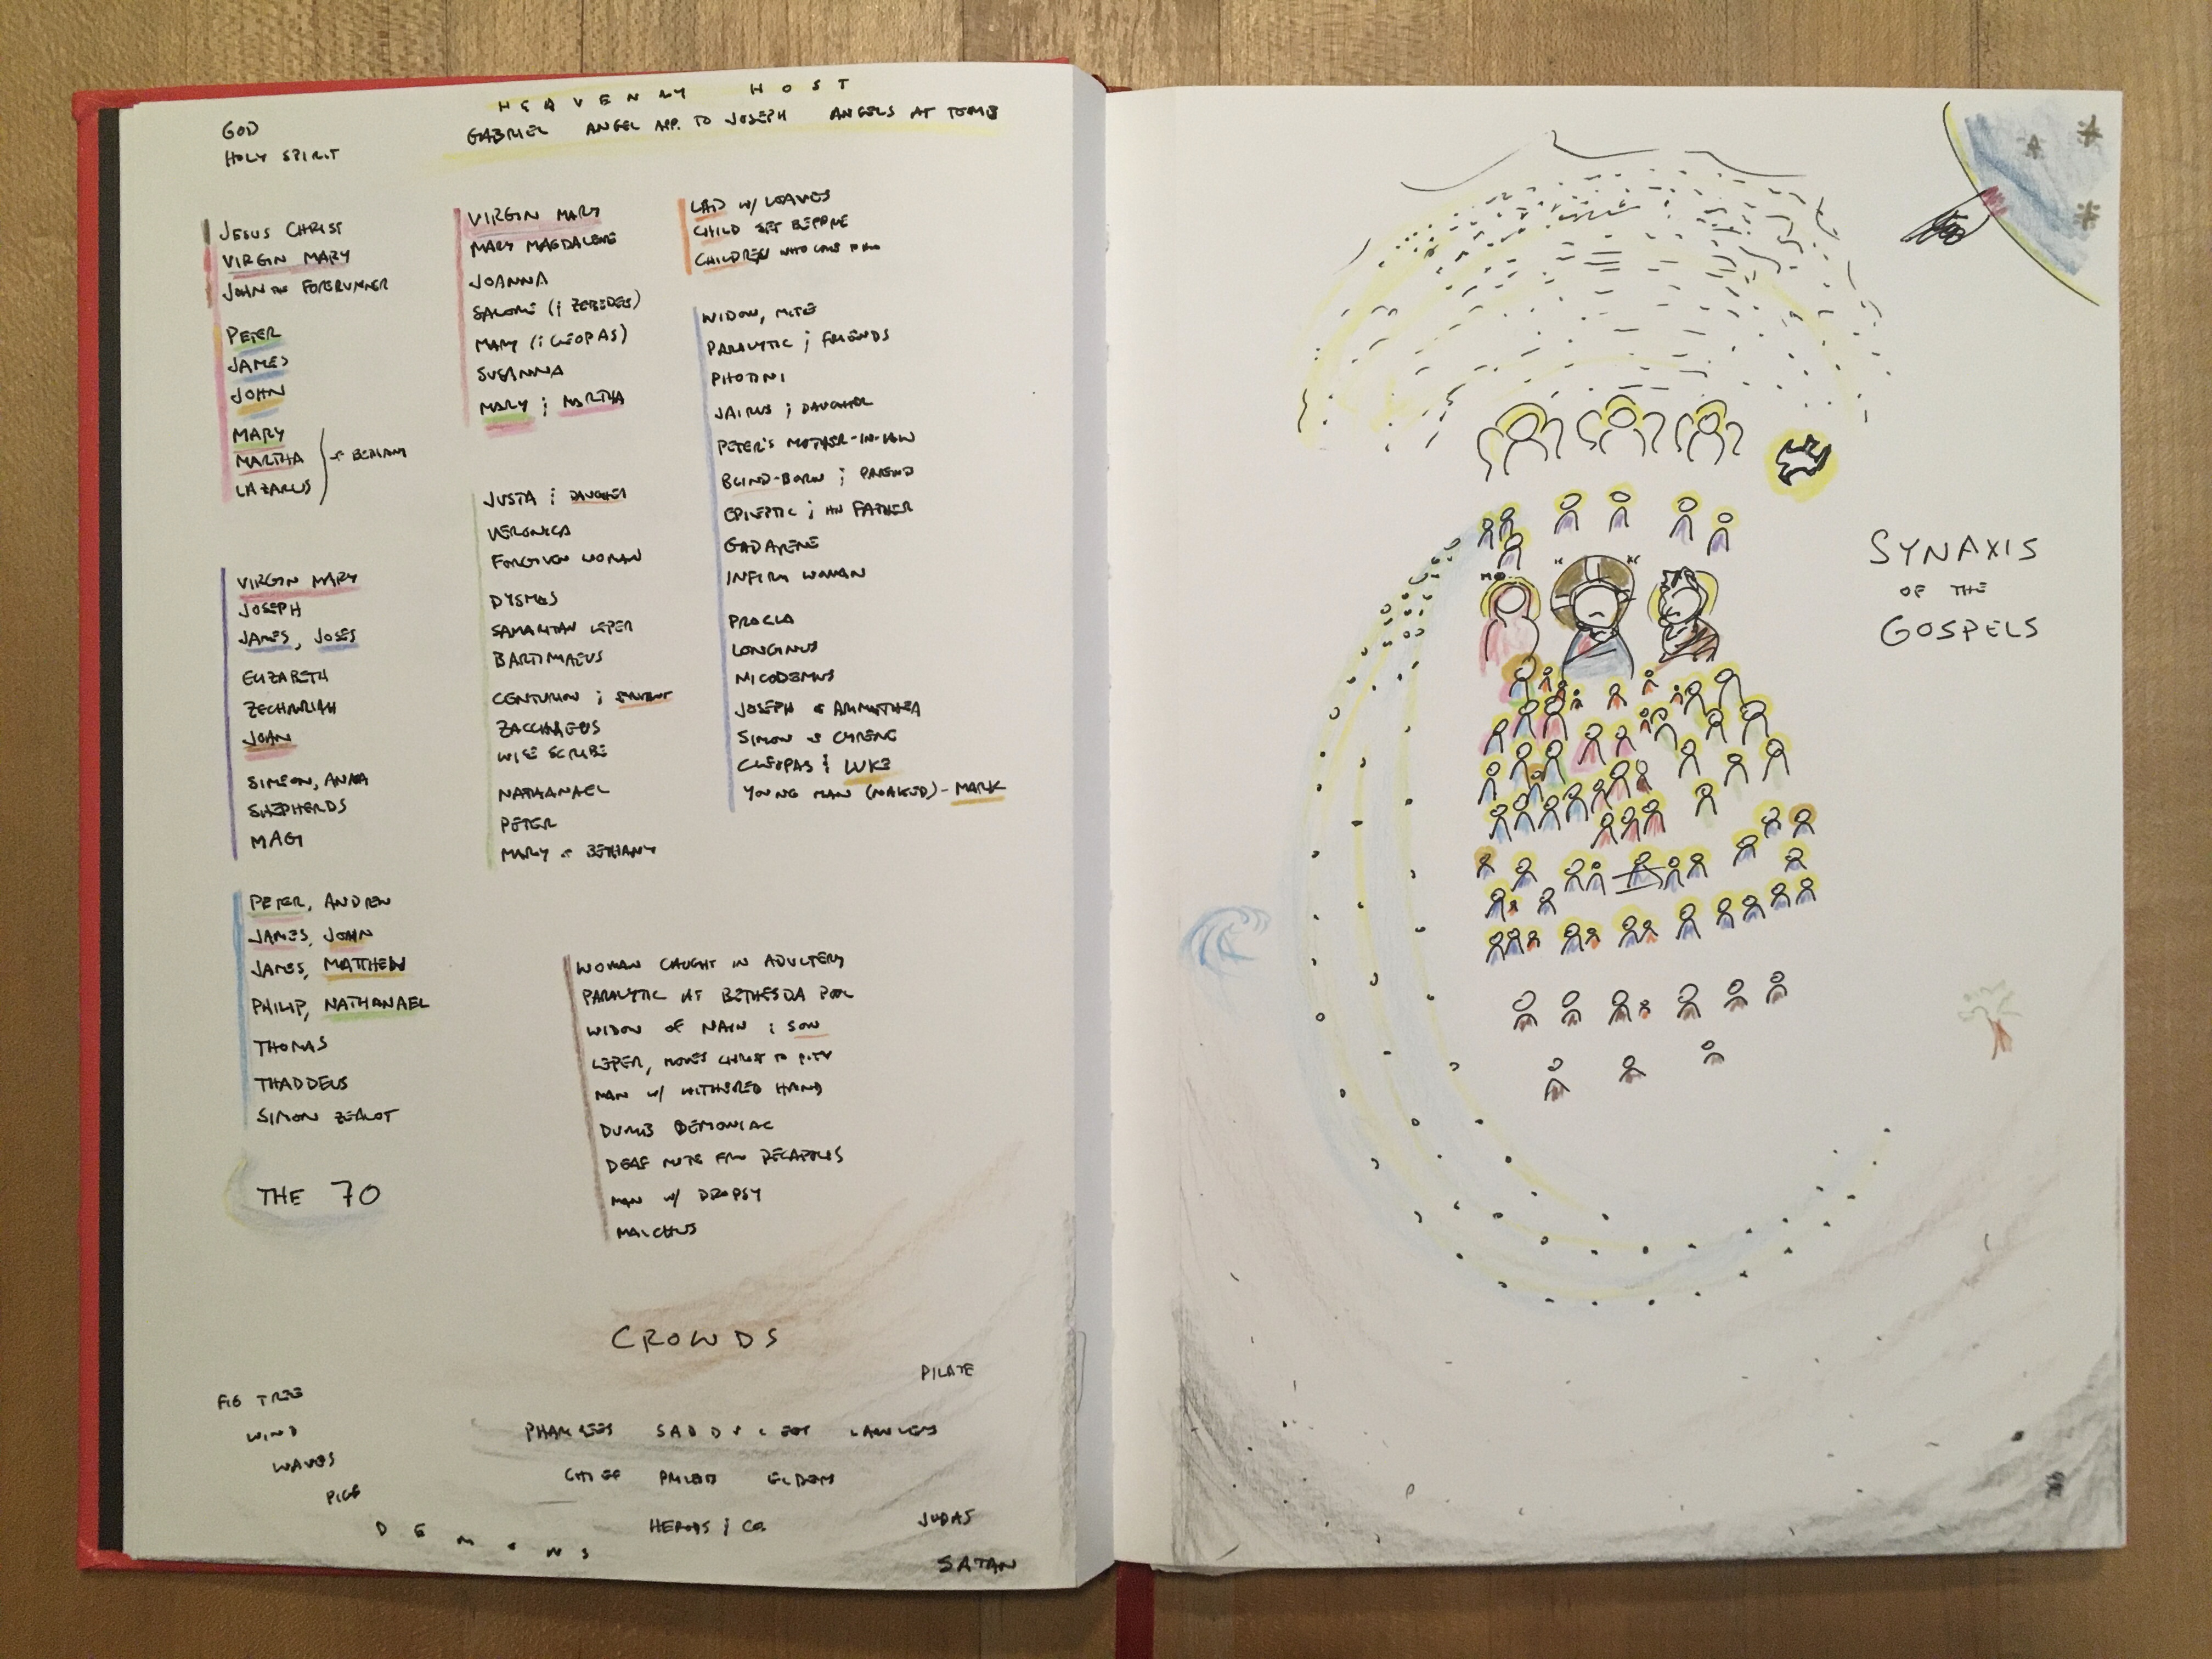 HEAVENLY HOST
GABRIEL ANGEL APP. TO JOSEPH ANGELS AT TOMB
GOD
HOLY SPIRIT
JESUS CHRIST
VIRGIN MARY
JOHN THE FORERUNNER
PETER
JAMES
JOHN
MARY
MARTHA
LAZARUS
OF BETHANY
VIRGIN MARY
JOSEPH
JAMES, JOSES
ELIZABETH
ZECHARIAH
JOHN
SIMEON, ANNA
SHEPHERDS
MAGI
PETER, ANDREW
JAMES, JOHN
JAMES, MATTHEW
PHILIP, NATHANAEL
THOMAS
THADDEUS
SIMON ZEALOT
THE 70
VIRGIN MARY
MARY MAGDALENE
JOANNA
SALOME (; ZEBEDEE)
MARY (; CLEOPAS)
SUSANNA
MARY ; MARTHA
JUSTA ; DAUGHTER
VERONICA
FORGIVEN WOMAN
DYSMAS
SAMARITAN LEPER
BARTIMAEUS
CENTURION ; SERVANT
ZACCHAEUS
WISE SCRIBE
NATHANAEL
PETER
MARY OF BETHANY
LAD W/ LOAVES
CHILD SET BEFORE
CHILDREN WHO COME TO HIM
WIDOW, MITE
PARALYTIC ; FRIENDS
PHOTINI
JAIRUS ; DAUGHTER
PETER'S MOTHER-IN-LAW
BLIND-BORN ; PARENTS
EPILEPTIC ; HIS FATHER
GADARENE
INFIRM WOMAN
PROCLA
LONGINUS
NICODEMUS
JOSEPH OF ARIMATHEA
SIMON OF CYRENE
CLEOPAS ; LUKE
YOUNG MAN (NAKED) - MARK
WOMAN CAUGHT IN ADULTERY
PARALYTIC AT BETHESDA POOL
WIDOW OF NAIN ; SON
LEPER, MOVES CHRIST TO PITY
MAN W/ WITHERED HAND
DUMB DEMONIAC
DEAF MUTE FROM DECAPOLIS
MAN W/ DROPSY
MALCHUS
CROWDS
PILATE
FIG TREE
WIND
WAVES
PIGS
DEMONS
PHARISEES SADDUCEES LAWYERS
CHIEF PRIESTS ELDERS
HERODS ; CO.
JUDAS
SATAN
SYNAXIS
OF THE
GOSPELS